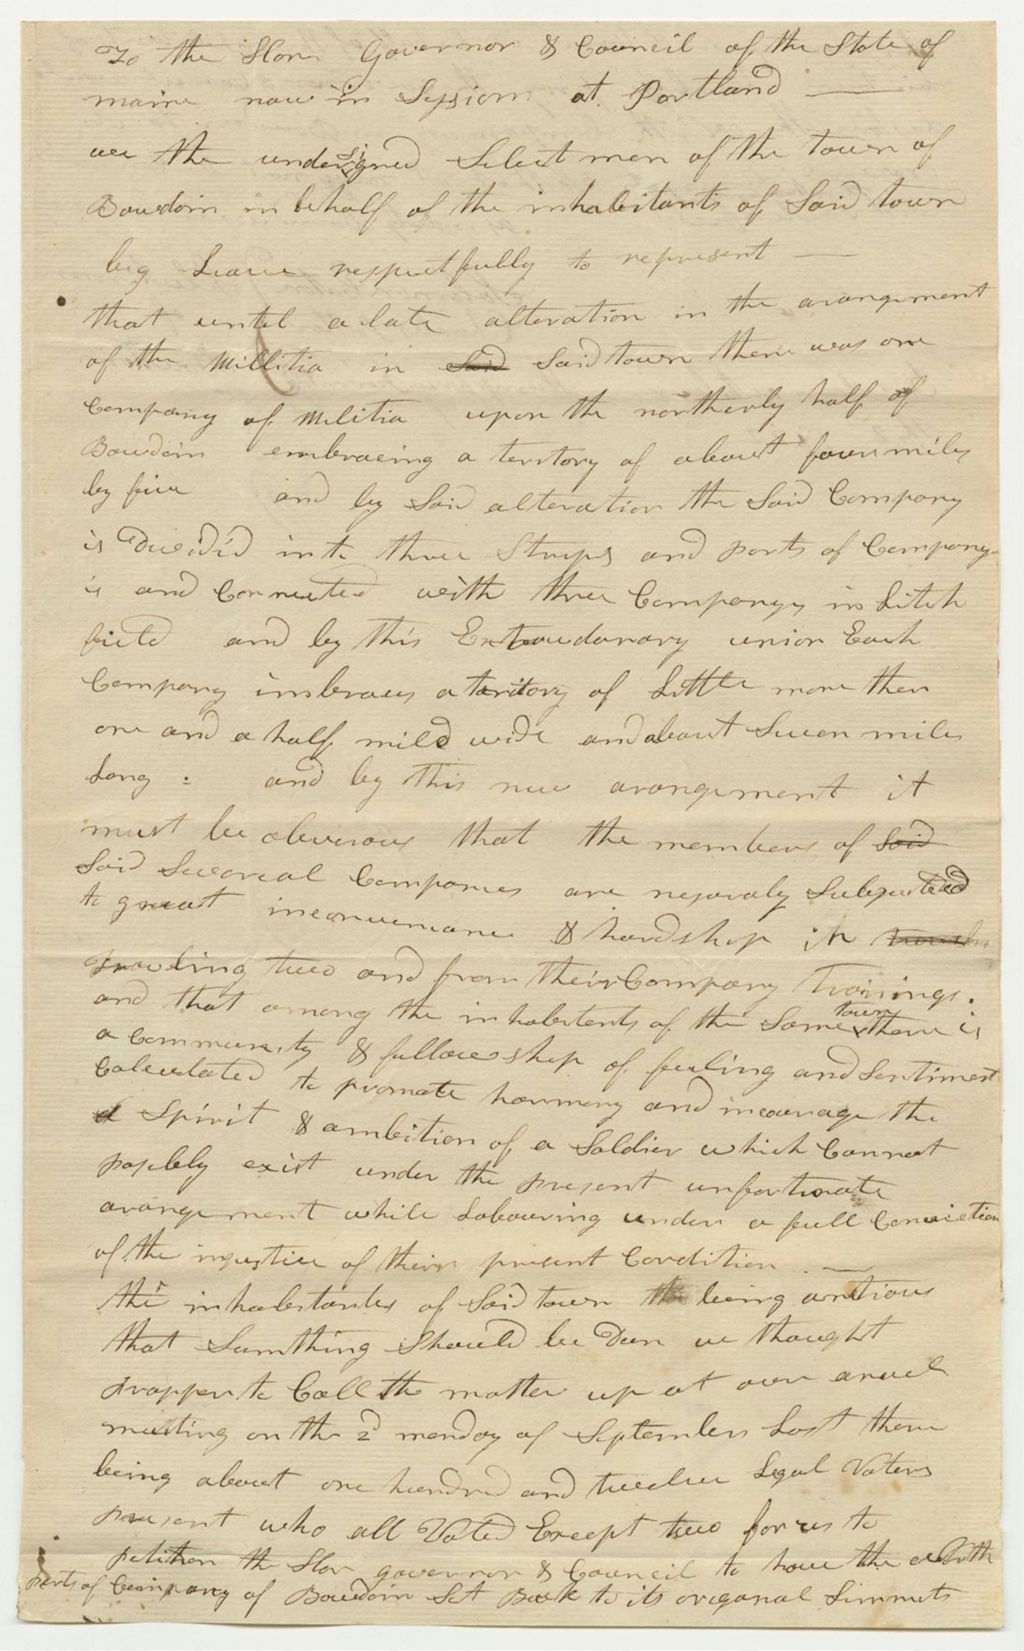 To the Hon. Governor & Council of the State of
maine now in Sessions at Portland —
we the undersigned Select men of the town of
Bowdoin in behalf of the inhabitants of Said town
beg Leave respectfully to represent —
that until a late alteration in the arangement
of the Millitia in Said Said town there was one
Company of Militia upon the northerly half of
Bowdoin embraceing a teritory of about four miles
by five and by Said alteration the Said Company
is Divided into three Strips and parts of Company
is and Connected with three Companys in Litch
field and by this Extraordanary union Each
Company imbraces a teritory of Little more then
one and a half mile wide and about Seven miles
Long : and by this new arangement it
must be obvious that the members of Said
Said Several Companies are Subjected
to great inconvenance & hardship in
traviling two and from their Company Trainings.
and that among the inhabitents of the Same town there is
a Community & fellowship of feeling and Sentiment
Calculated to promote harmony and incourage the
Spirit & ambition of a Soldier which Cannot
possibly exist under the present unfortunate
arangement while Labouring under a full Conviction
of the injustice of their present Condition . —
the inhabitants of Said town being antious
that Sumthing Should be Dun we thought
propper to Call the matter up at our anuel
meeting on the 2d monday of September Last there
being about one hundred and twelve Legal Voters
present who all Voted Except two for us to
petition the Hon governor & Council to have the
parts of Company of Bowdoin Set Back to its origanal Limmits